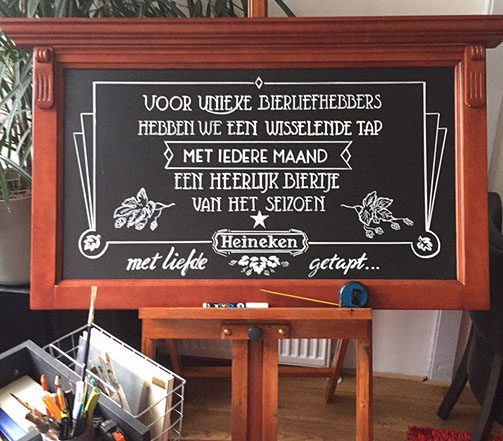 VOOR UNIEKE BIERLIEFHEBBERS
HEBBEN WE EEN WISSELENDE TAP
MET IEDERE MAAND
EEN HEERLIJK BIERTJE
VAN HET SEIZOEN
Heineken
met liefde getapt...